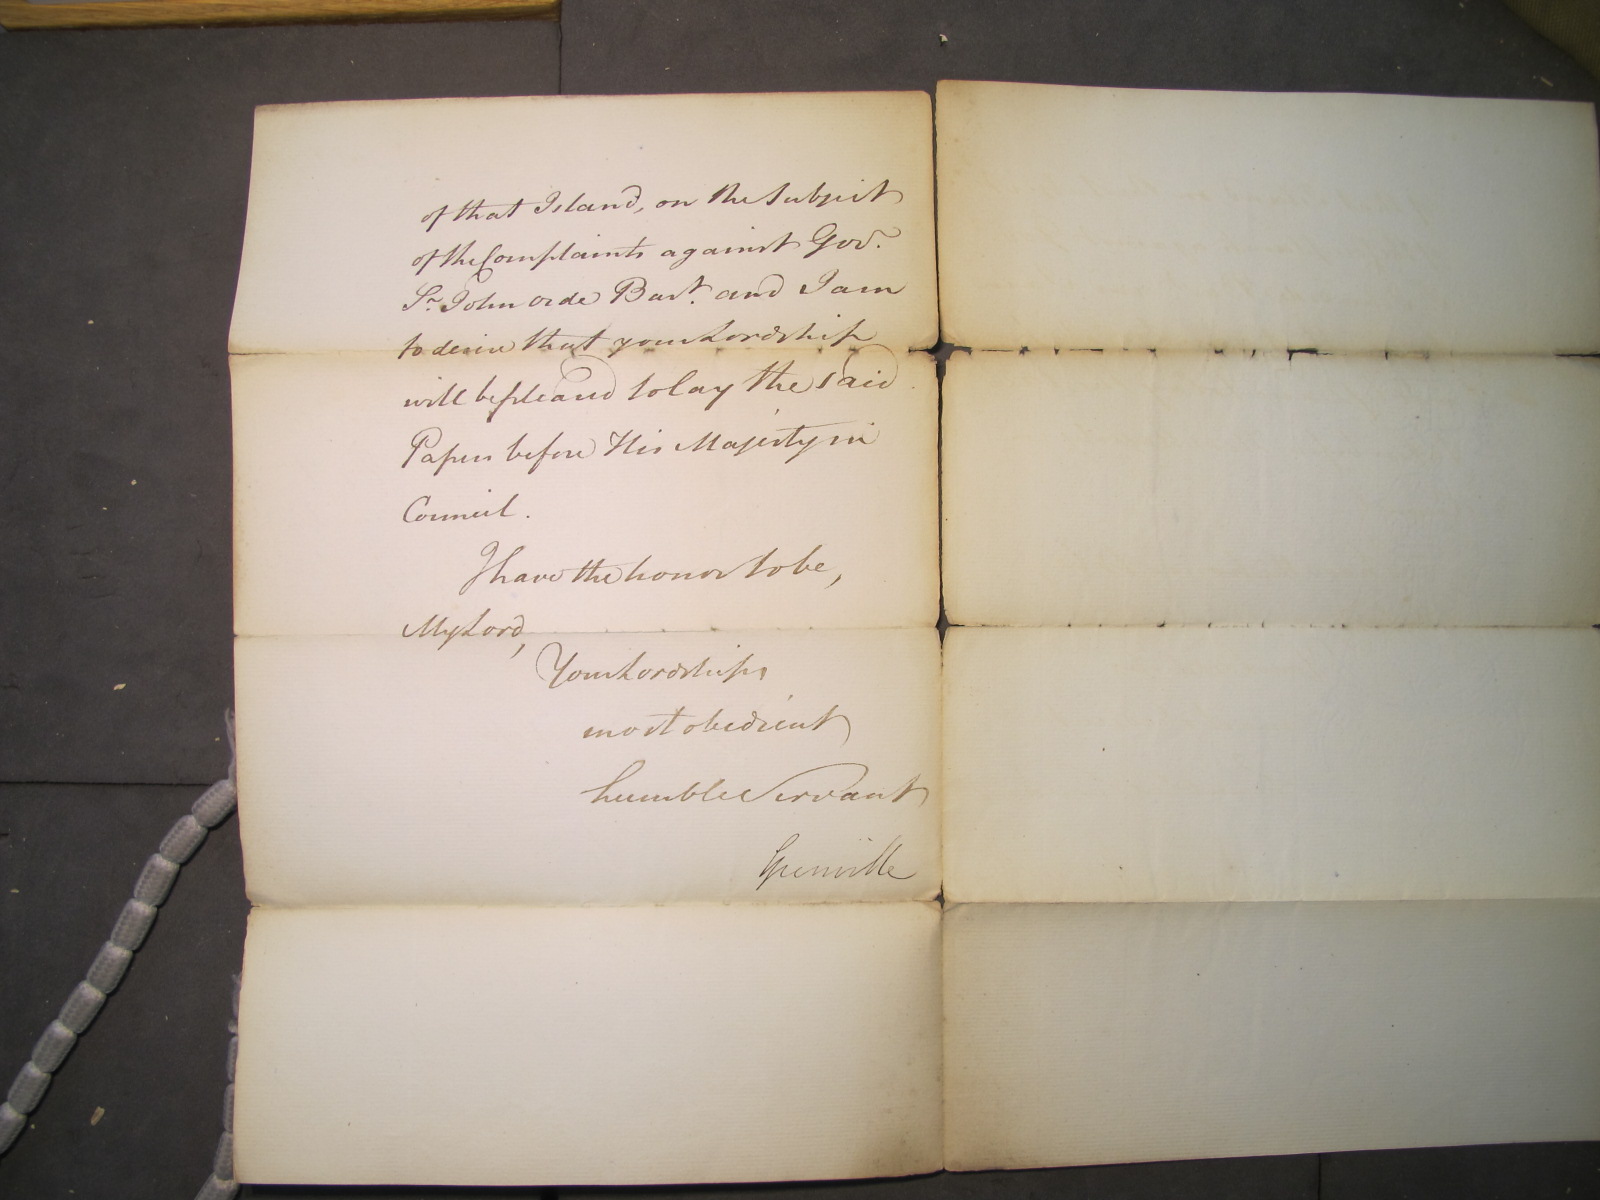 of that Island, on the Subject
of the Complaints against Govr.
Sr. John orde Bart. and I am
to desire that your Lordship
will be pleased to lay the said
Papers before His Majesty in
Council.
I have the honor to be,
My Lord,
Your Lordships
most obedient
humble Servant
Grenville